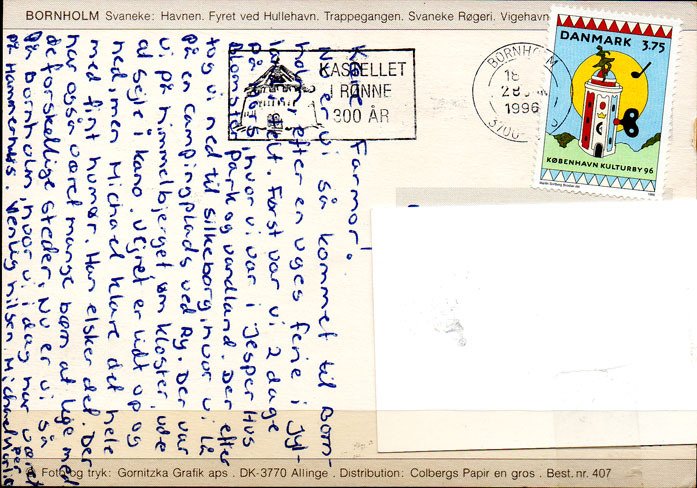 BORNHOLM Svaneke: Havnen. Fyret ved Hullehavn. Trappegangen. Svaneke Røgeri. Vigehavn
KASTELLET
I RØNNE
300 ÅR
BORNHOLM
18
28
1996
3700
DANMARK 3.75
KØBENHAVN KULTURBY 96
Kære Farmor!
Nu er vi så kommet til Born-
holm, efter en uges ferie i Jyl-
land i telt. Først var vi 2 dage
på Mors, hvor vi var i Jesperhus
Blomster Park og vandland. Der efter
tog vi ned til Silkeborg, hvor vi lå
på en campingplads ved Ry. Der var
vi på Himmelbjerget om kloster, ude
at sejle i kano. Vejret er lidt op og
ned men Michael klare det hele
med fint humør. Han elsker det. Der
har også været mange børn at lege med
de forskellige steder. Nu er vi så
på Bornholm, hvor vi i dag har været
på Hammershus. Venlig hilsen Michael Marlie
Per
Foto og tryk: Gornitzka Grafik aps . DK-3770 Allinge . Distribution: Colbergs Papir en gros . Best. nr. 407